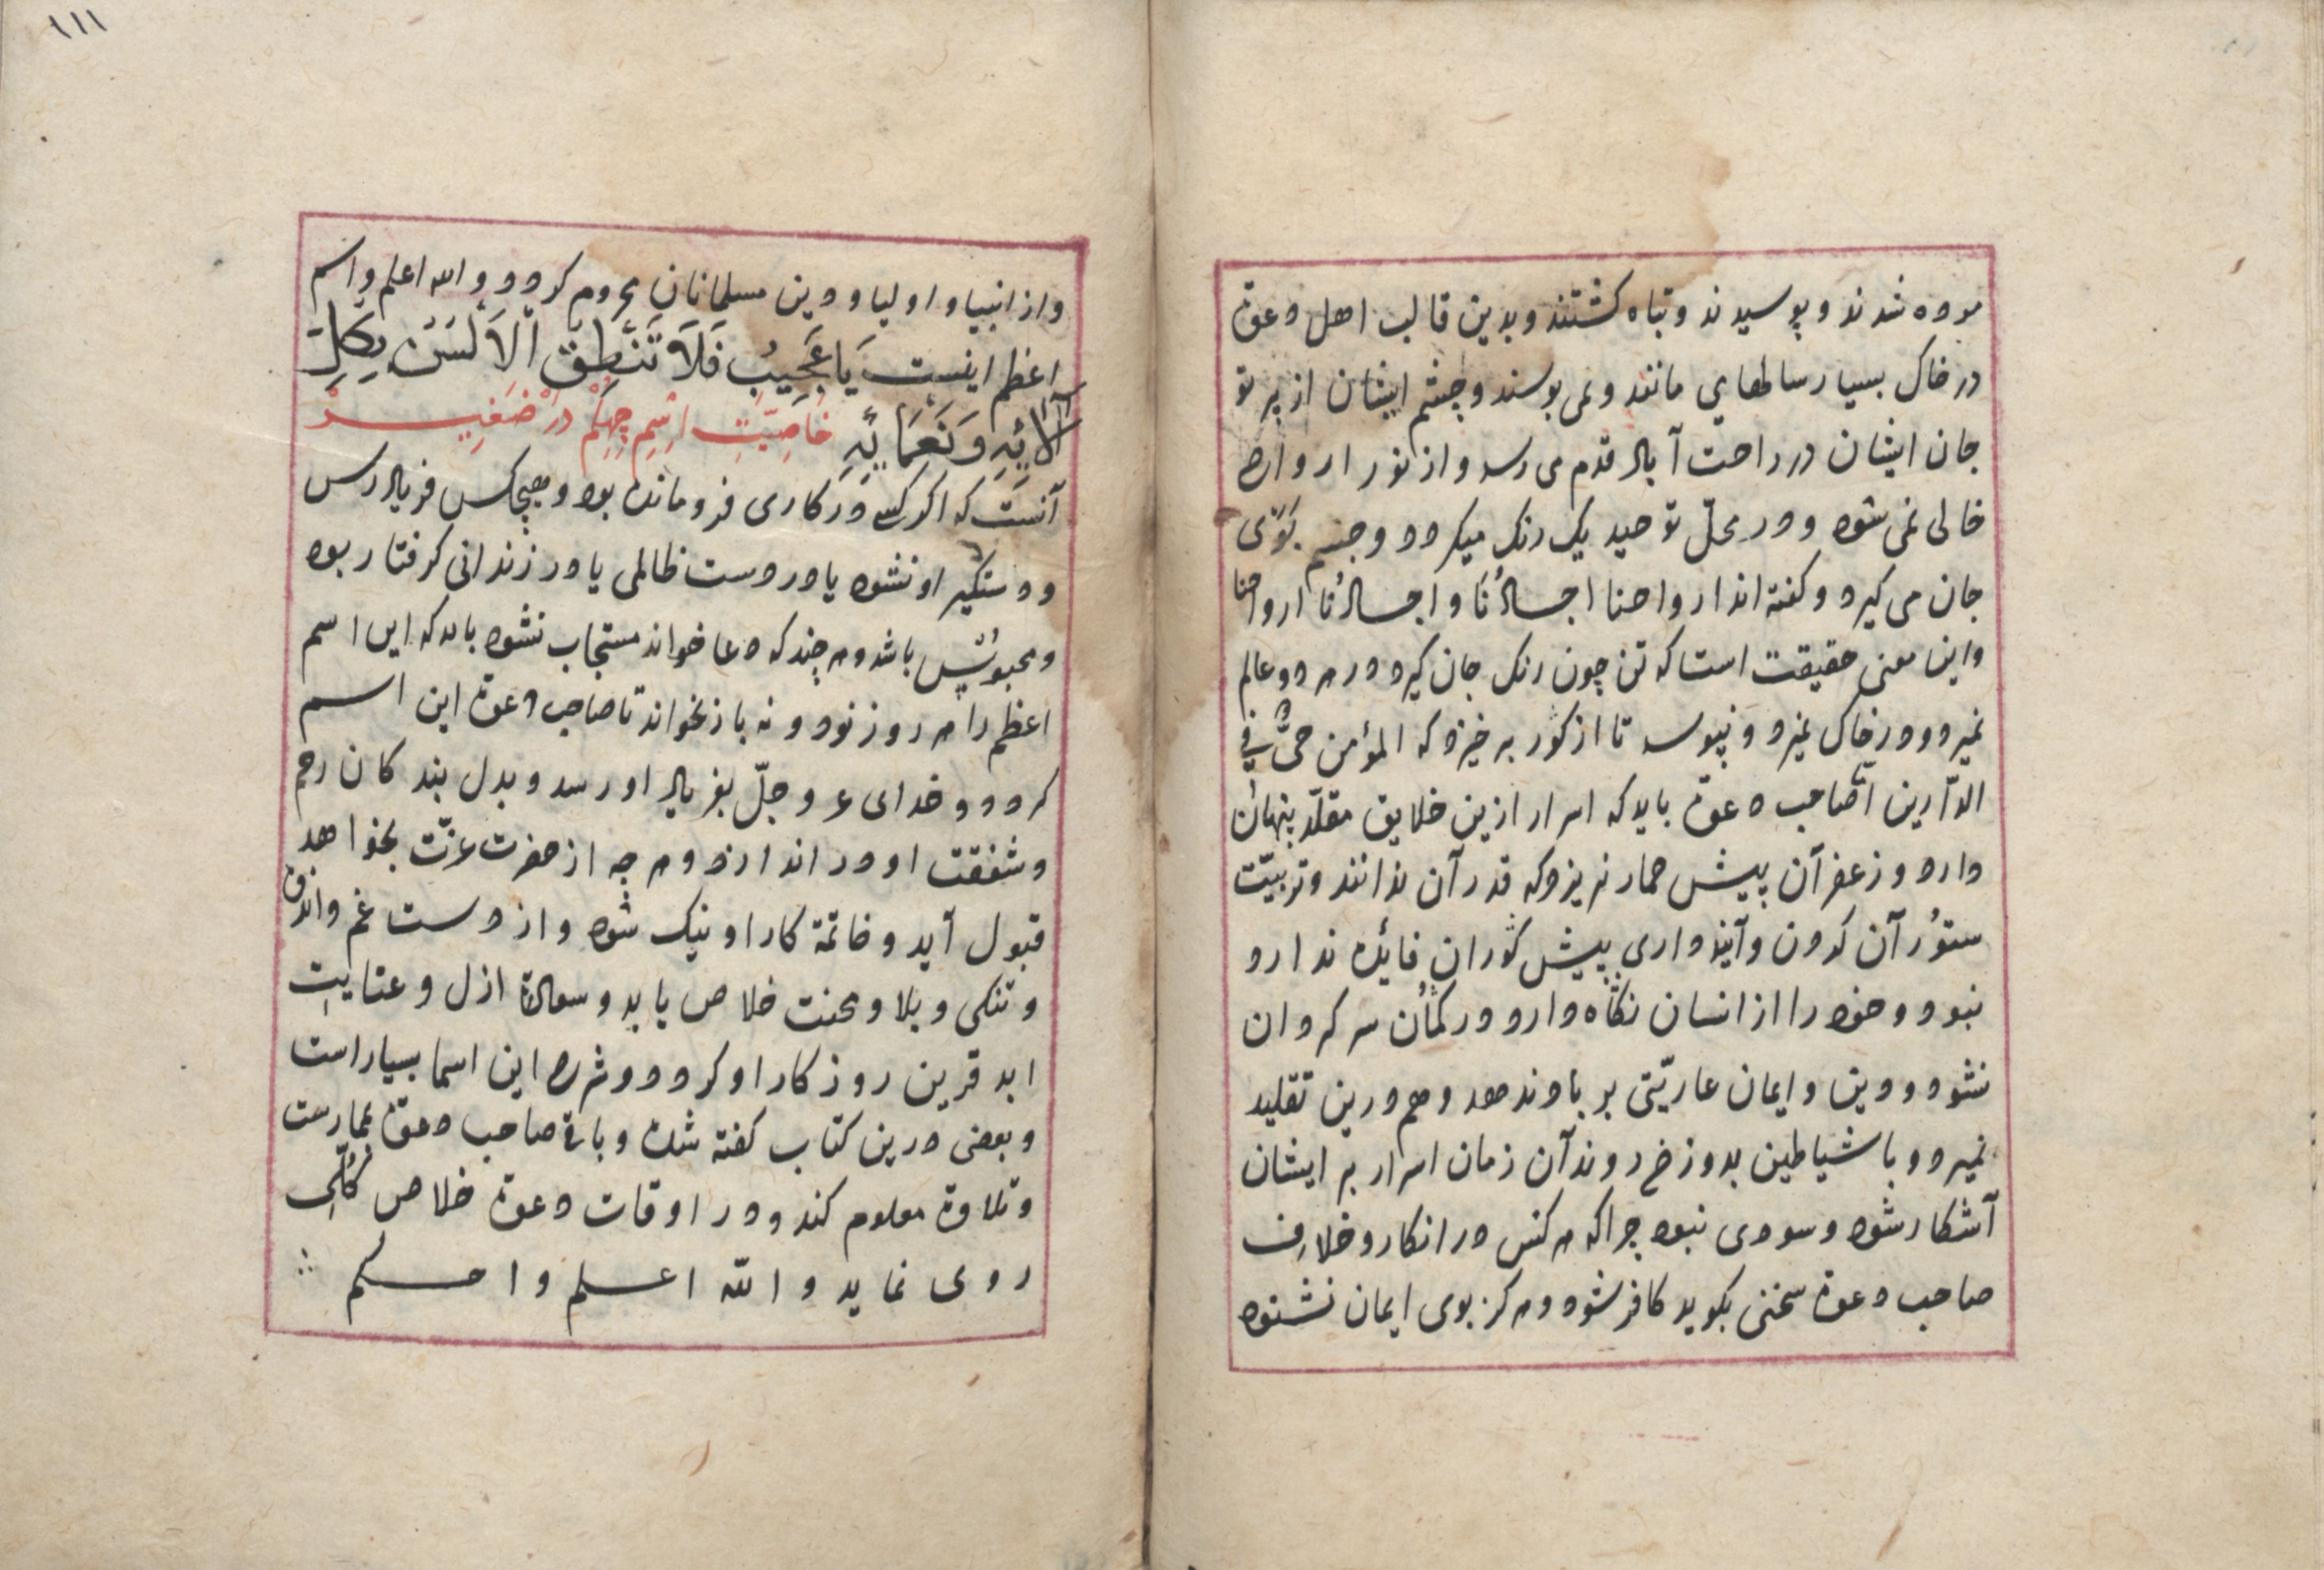 مرده شدند و پوسیدند و تباه کشتند و بدین قالب اهل دعوة
در خاک بسیار سالهای مانند و نمی بوسند و چشم ایشان از پر تو
جان ایشان در راحت آباد قدم می رسد و از نور ارواح
خالی نمی شود و در محلّ توحید یک رنک میکردد و جسم بوی
جان می کیرد و کفته اند ارواحنا اجسادُنَا و اجسادُنا ارواحنا
و این معنی حقیقت است که تن چون رنک جان کیرد در هر دو عالم
نمیرد و در خاک نمیرد و نپوسد تا از کور بر خیزد که المؤمن حیٌّ فی
الدّارین امّا صاحب دعوة باید که اسرار ازین خلایق مقلّد پنهان
دارد و زعفران پیش حمار نریزد که قدر آن ندانند و تربیّت
ستوُرآن کردن و آینه داری پیش کوران فائده ندارد
نبود و خود را از انسان نکاه دارد و در کمان سر کردان
نشود و دین و ایمان عاریّتی بر باد ندهد و هم درین تقلید
نمیرد و با شیاطین بدوزخ روند آن زمان اسرار بر ایشان
آشکار شود و سودی نبود چراکه هر کس در انکار و خلاف
صاحب دعوة سخنی بکوید کافر شود و هر کز بوی ایمان نشنود
١١١
و از انبیا و اولیا و دین مسلمانان محروم کردد و والله اعلم و اسم
اعظم اینست یَا عَجِیبُ فَلاَ تَنْطِقُ الْاَلْسَنُ بِکُلِّ
آلآئِهِ وَ نَعْمَائِهِ خَاصِیَّتِ اِسْمِ چِهِلُمْ دَرْ صَغِیرْ
آنست که اکر کسی در کاری فرو مانده بود و هیچکس فریاد رس
و دستکیر او نشود یا در دست ظالمی یا در زندانی کرفتار بود
و محبوس باشد و هر چند که دعا خواند مستجاب نشود باید که این اسم
اعظم را هر روز نود و نه بار بخواند تا صاحب دعوة این اسم
کردد و خدای عز و جلّ بفریاد او رسد و بدل بندکان رحم
و شفقت او در اندازد و هر چه از حضرت عزّت بخواهد
قبول آید و خاتمة کار او نیک شود و از دست غم و اندوه
و تنکی و بلا و محنت خلاص یابد و سعادة ازل و عنایت
ابد قرین روزکار او کردد و شرح این اسما بسیار است
و بعضی درین کتاب کفته شده و باقی صاحب دعوة بممارست
و تلاوة معلوم کند و در اوقات دعوة خلاص کلّی
روی نماید و الله اعلم و احکم